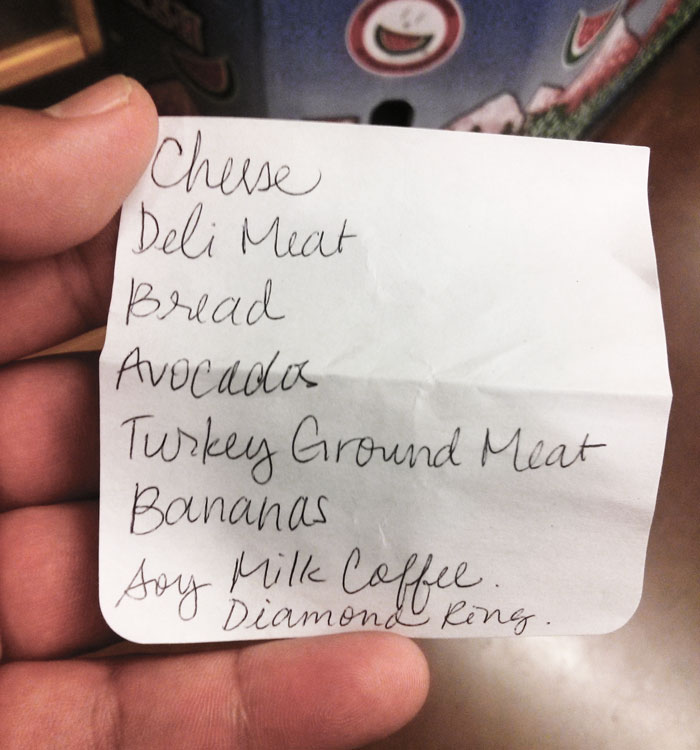 Cheese
Deli Meat
Bread
Avocados
Turkey Ground Meat
Bananas
Soy Milk Coffee.
Diamond Ring.